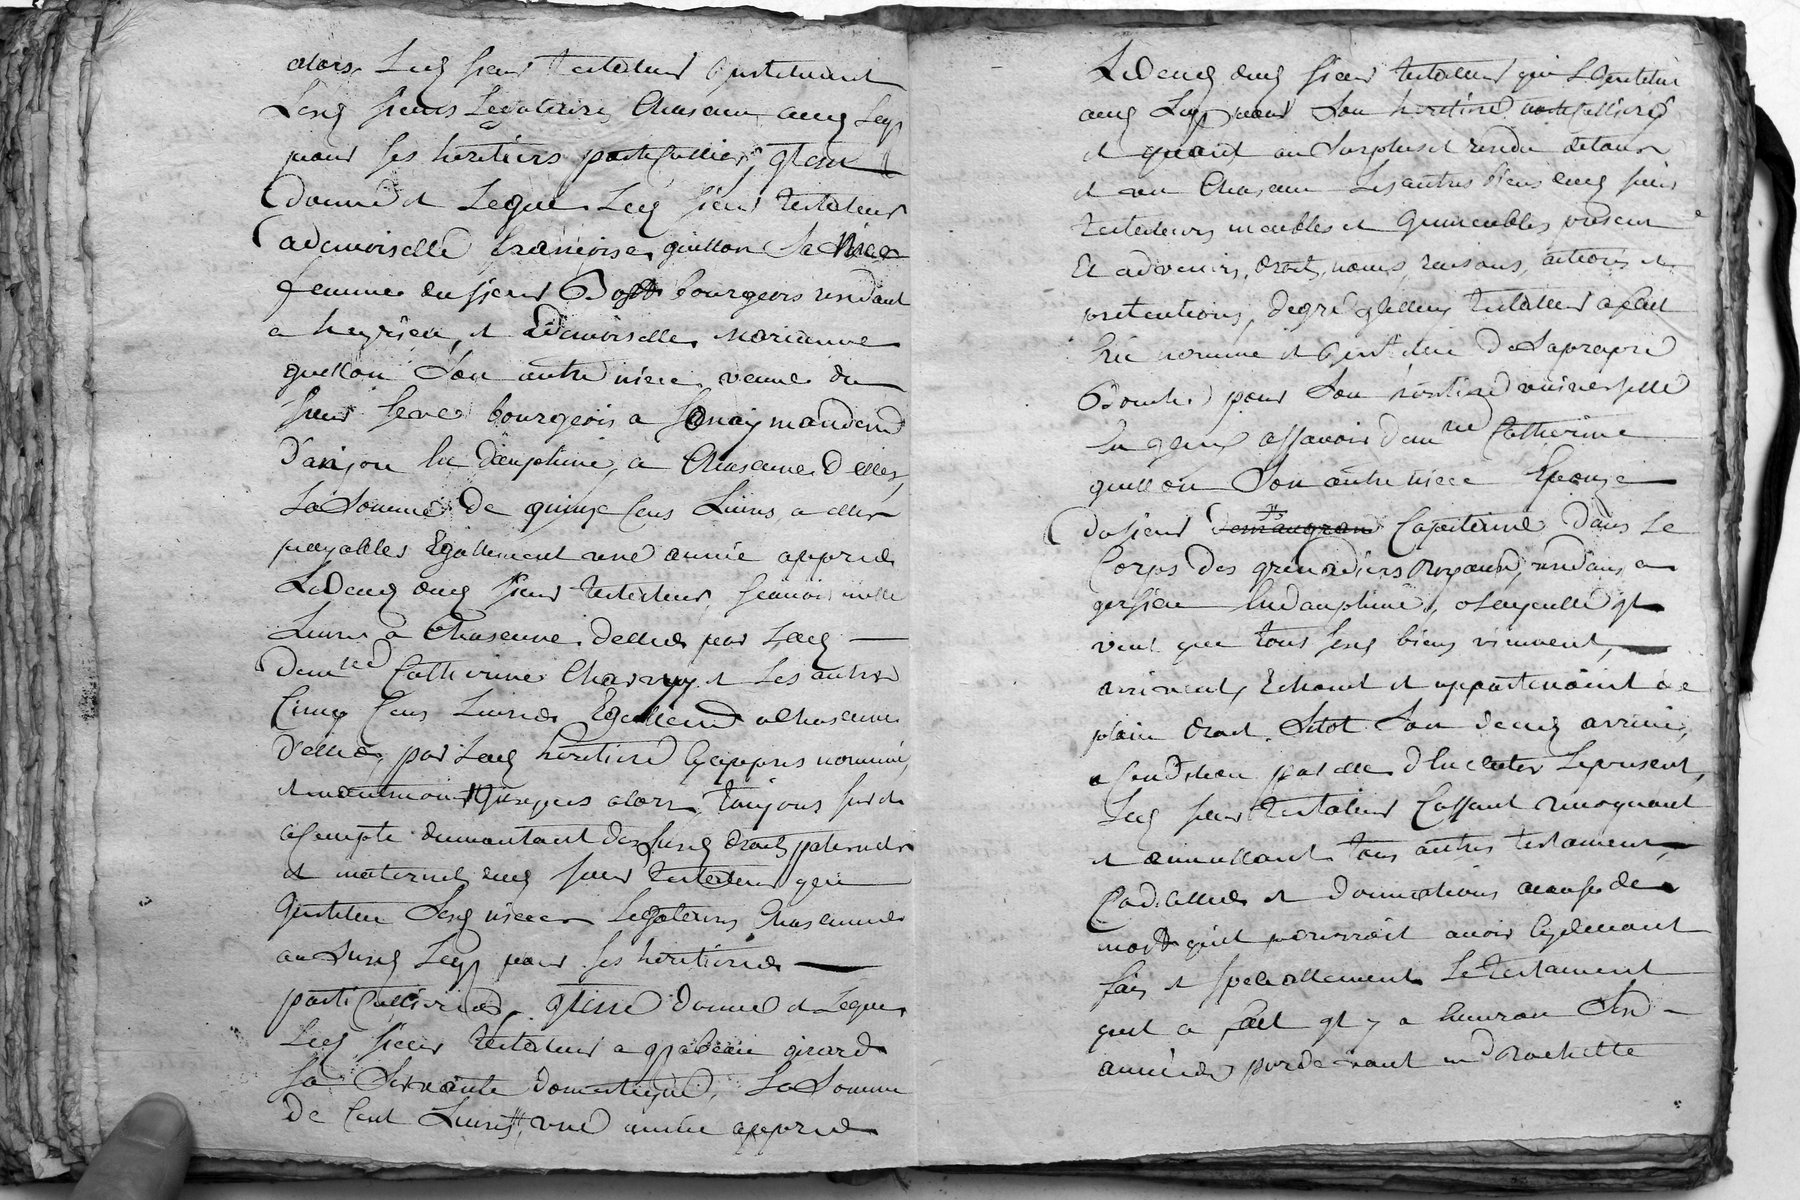 alors, Led sieur testateur instituant
Lesd sieurs Legataires Chascun aud Legs
pour ses heritiers particulliers, Item
donne et Legue Led sieur testateur
a demoiselle françoise guillon sa Niece
femme du sieur bourgeois residant
a heyrieu, et demoiselle marianne
guillon son autre niece veuve du
sieur bourgeois a mandement
D'anjou en dauphiné, a Chascune d'elles,
La somme de quinze Cens Livres, a elles
payables Egallement une année apprès
Le deced dud sieur testateur, scavoir mille
Livres a Chascune d'elles par Lad
dem.lle Catherine et Les autres
Cinq Cens Livres Egallement a Chascune
d'elles, par Lad heritiere Cy apprès nommée,
et jusques alors, toujours sur et
a Compte du montant des susd droits paternels
et maternels dud sieur testateur qui
institue Lesd nieces Legataires Chascune
au susd Legs pour ses heritieres
particullieres. Item donne et Legue
Led sieur testateur a girard
sa servante domestique, La somme
de Cent Livres, une année apprès
Le deced dud sieur testateur qui L'institue
aud Legs pour son heritiere particulliere
et quant au surplus et residu de tous
et un Chascun Les autres biens dud sieur
testateur, meubles et immeubles, present
Et advenir, droits, noms, raisons, actions et
pretentions, Led sieur testateur a fait
Cree nommé et institué de sa propre
Bouche pour son heritiere universelle
assavoir dem.lle Catherine
guillon son autre niece Epouse
du sieur Capitaine dans Le
Corps des grenadiers Royaux, residant a
en dauphiné, a laquelle Il
veut que tous sesd biens viennent,
arrivent, Echoient et appartiennent de
plein droit sitot son deced arrivé,
a Condition par elle d'executer Le present,
Led sieur testateur Cassant revoquant
et annullant tous autres testament,
Codicilles et donnations a cause de
mort qu'il pourroit avoir Cydevant
fais et speciallement Le testament
qu'il a fait Il y a environ
années pardevant m.e Rochette